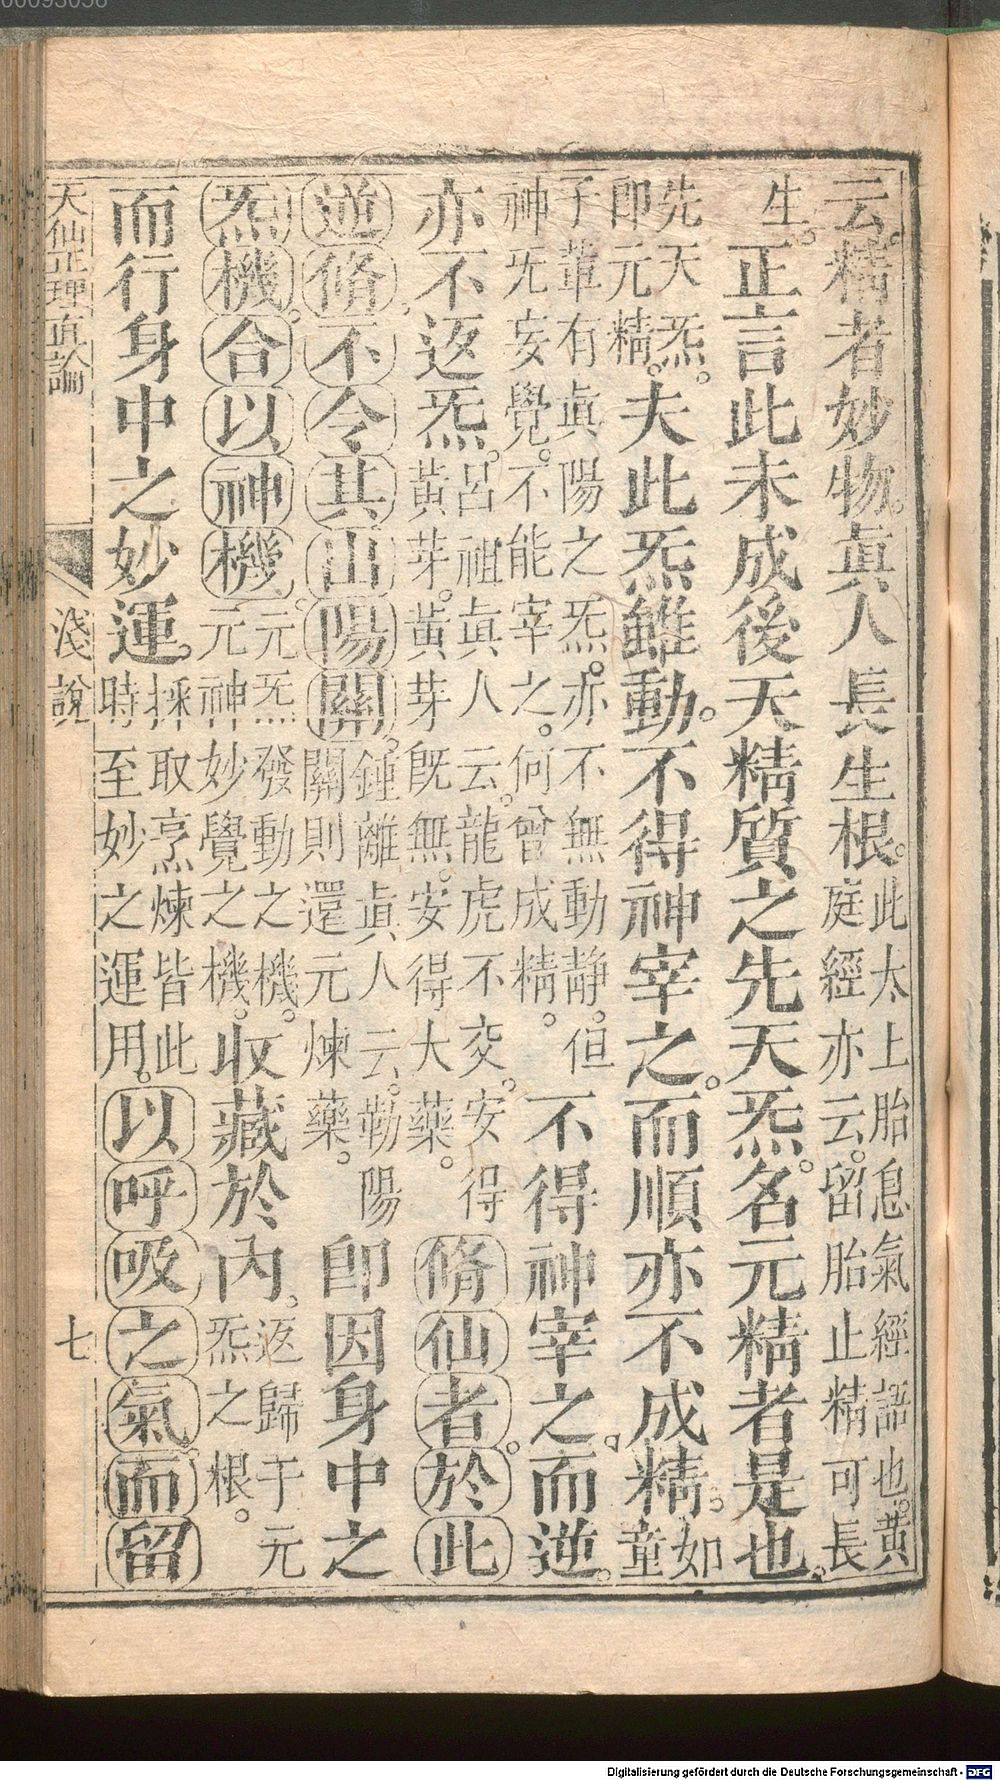 00093056
云。精者妙物。眞人長生根。此太上胎息氣經語也。黃庭經亦云。留胎止精可長
生。正言此未成後天精質之先天炁。名元精者是也。
先天炁。卽元精。夫此炁雖動。不得神宰之。而順亦不成精。如童
子輩有眞陽之炁。亦不無動靜。但神旡妄覺。不能宰之。何曾成精。不得神宰之。而逆。
亦不返炁。呂祖眞人云。龍虎不交。安得黃芽。黃芽旣無。安得大藥。脩仙者。於此
逆脩。不令其出陽關。鍾離眞人云。勒陽關則還元煉藥。卽因身中之
炁機。合以神機。元炁發動之機。元神妙覺之機。收藏於內。返歸于元炁之根。
而行身中之妙運。採取烹煉皆此時至妙之運用。以呼吸之氣。而留
天仙正理直論 淺說 七
Digitalisierung gefördert durch die Deutsche Forschungsgemeinschaft - DFG